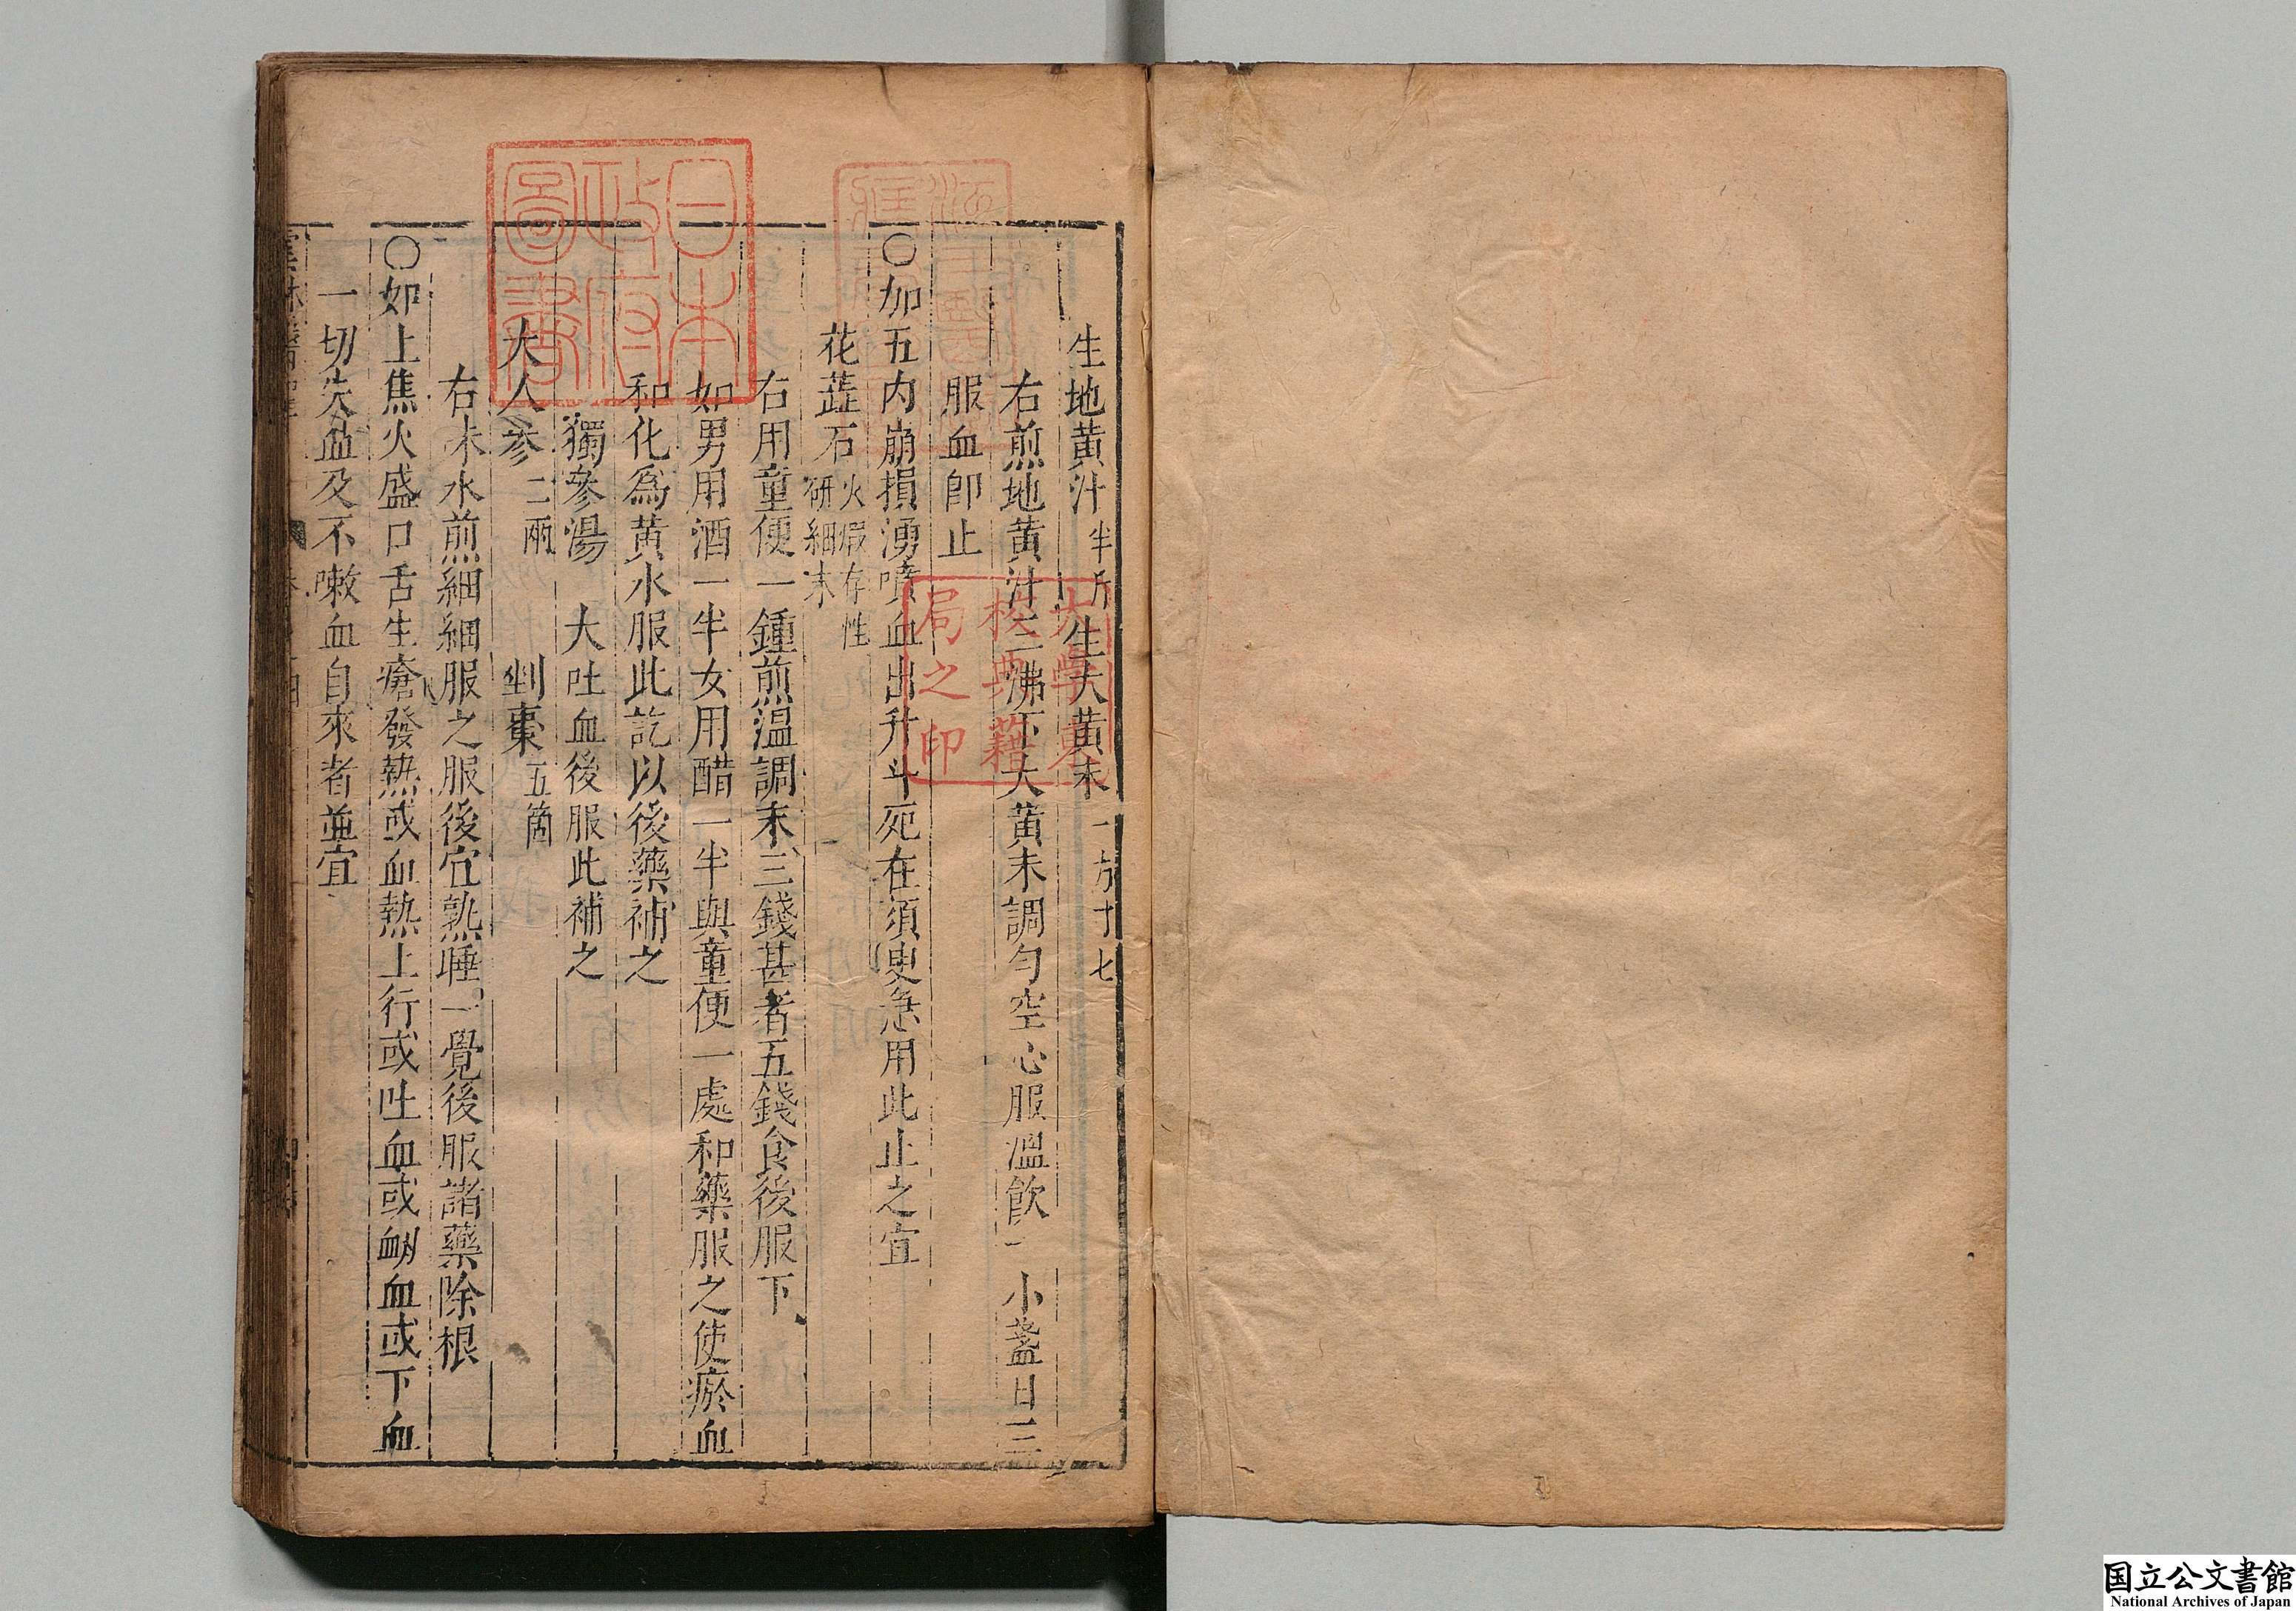 生地黄汁半斤生大黄末一方寸七
右煎地黄汁三沸下大黄末調勻空心服溫飲一小盞日三
服血卽止
○加五内崩損湧噴血出升斗死在須臾急用此止之宜
花蕋石火煆存性研細末
右用童便一鍾煎温調末三錢甚者五錢食後服下
如男用酒一半女用醋一半與童便一處和藥服之使瘀血
和化爲黄水服此訖以後藥補之
獨參湯 大吐血後服此補之
大人參二兩 剉棗五箇
右㕮水煎細細服之服後宜熟睡一覺後服諸藥除根
○如上焦火盛口舌生瘡發熱或血熱上行或吐血或衂血或下血
一切失血及不嗽血自來者並宜
日本政府圖書
大學東校典籍局之印
国立公文書館
National Archives of Japan